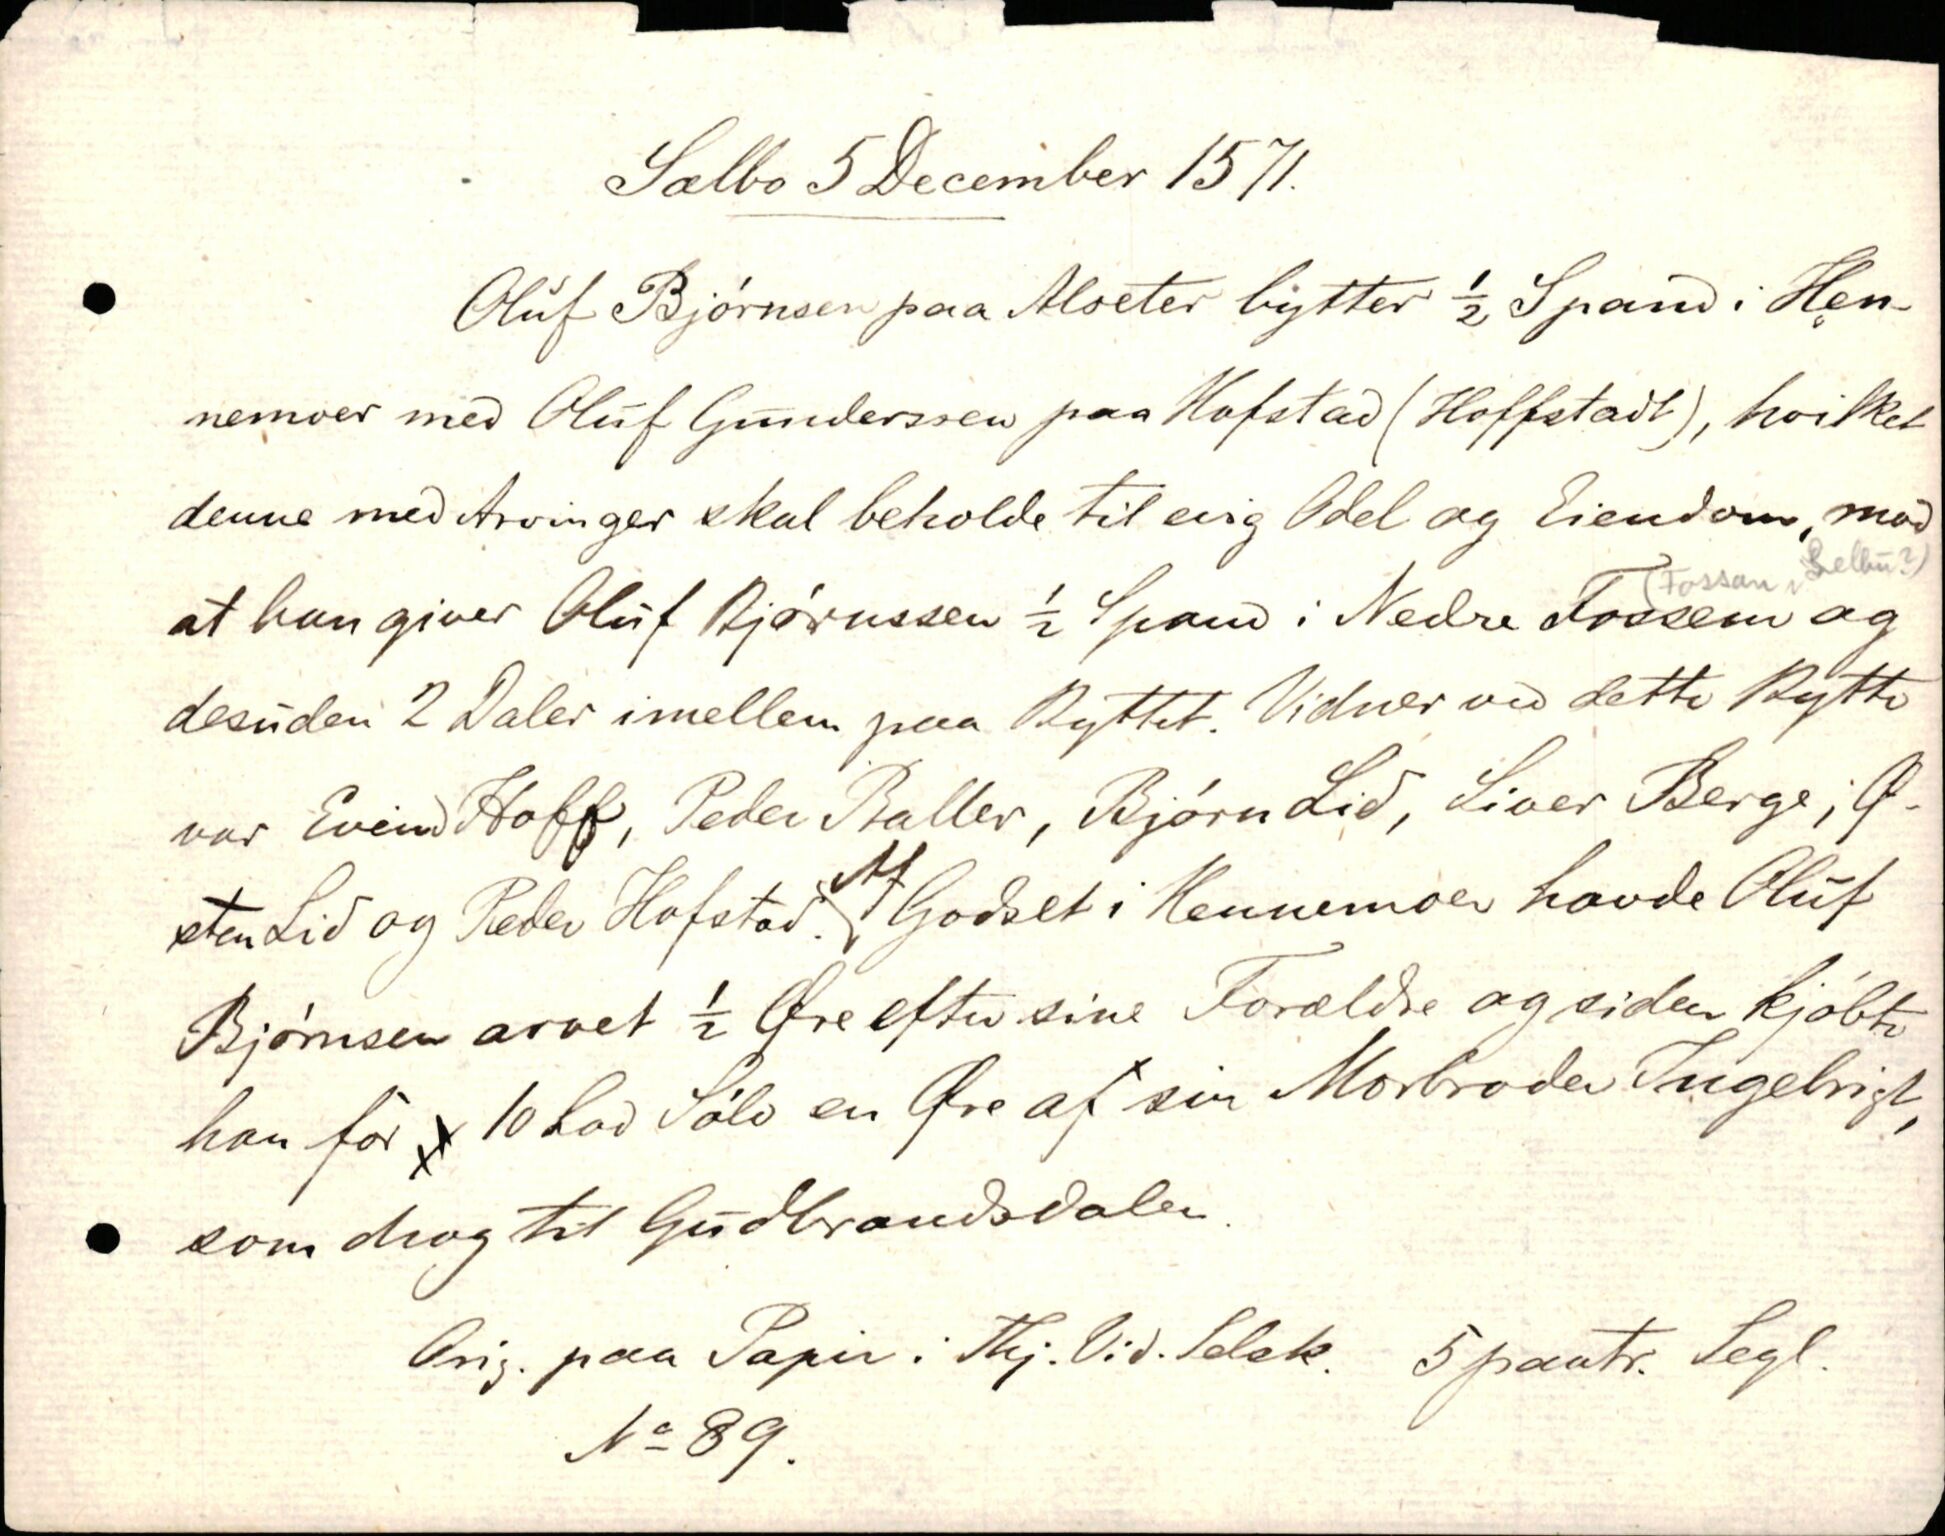 Sælbo 5 December 1571.
Oluf Bjørnsen paa Alseter bytter ½ Spand i Hen-
nemoer med Oluf Gunderssen paa Hofstad (Hoffstadt), hvilket
denne med Arvinger skal beholde til evig Odel og Eiendom, mod
(Fossan i Selbu?)
at han giver Oluf Bjørnssen ½ Spand i Nedre Fossem og
desuden 2 Daler imellem paa Byttet. Vidner ved dette Bytte
var Evind Hoff, Peder Baller, Bjørn Lid, Siver Berge, Ø-
sten Lid og Peder Hofstad. Af Godset i Hennemoer havde Oluf
Bjørnsen arvet ½ Øre efter sine Forældre og siden kjøbte
han for 10 Lod Sølv en Øre af sin Morbroder Ingebrigt,
som drog til Gudbrandsdalen.
Orig. paa Papir i Thj. Vid. Selsk. 5 paatr. Segl.
No 89.